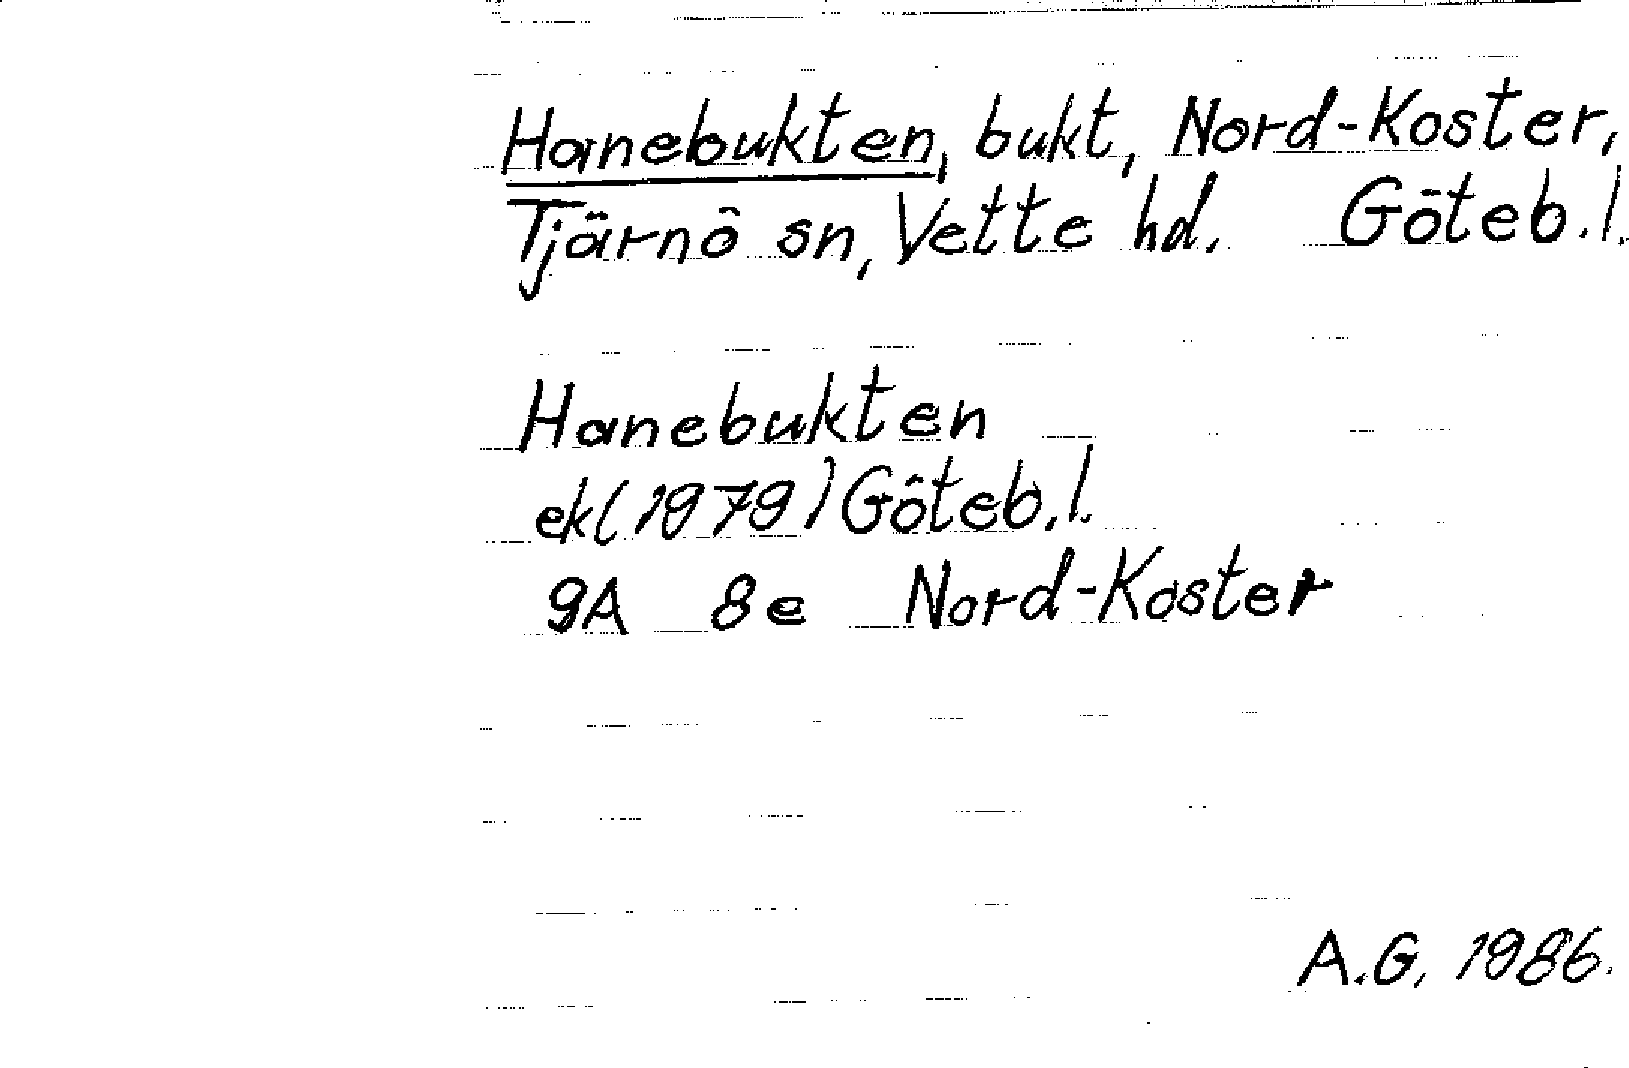 Hanebukten, bukt, Nord-Koster,
Tjärnö sn, Vette hd. Göteb.l.
Hanebukten
ek(1979) Göteb.l.
9A 8e Nord-Koster
A.G, 1986.